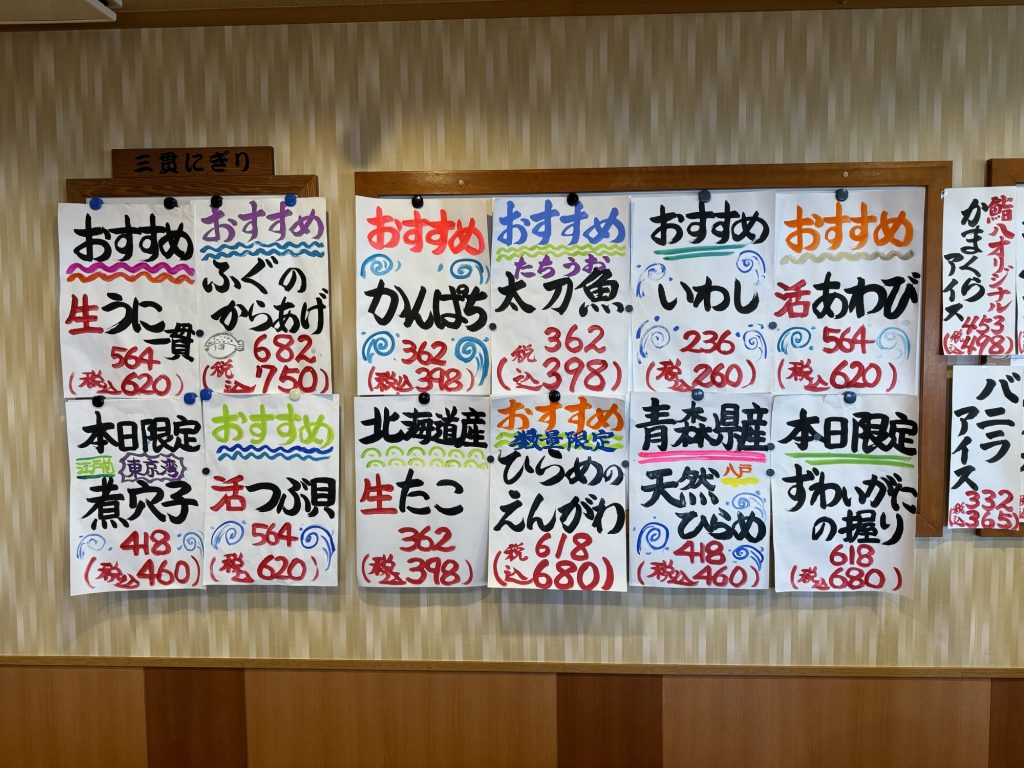 三貫にぎり
おすすめ
生うに
一貫
564
(税込620)
おすすめ
ふぐの
からあげ
682
(税込750)
本日限定
江戸前
東京湾
煮穴子
418
(税込460)
おすすめ
活つぶ貝
564
(税込620)
おすすめ
かんぱち
362
(税込398)
おすすめ
たちうお
太刀魚
362
(税込398)
おすすめ
いわし
236
(税込260)
おすすめ
活あわび
564
(税込620)
北海道産
生たこ
362
(税込398)
おすすめ
数量限定
ひらめの
えんがわ
618
(税込680)
青森県産
八戸
天然
ひらめ
418
(税込460)
本日限定
ずわいがに
の握り
618
(税込680)
鮨八オリジナル
かまくら
アイス
453
(税込498)
バニラ
アイス
332
(税込365)